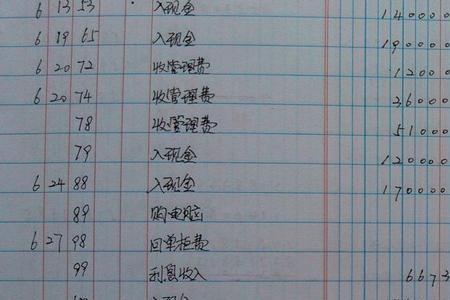 6 13 53 入现金 140000
6 19 65 入现金 190000
6 20 72 收管理费 12000
6 20 74 收管理费 36000
78 收管理费 51000
79 入现金 120000
6 24 88 入现金 170000
89 购电脑
6 27 98 回单柜费
99 利息收入 6673
入现金